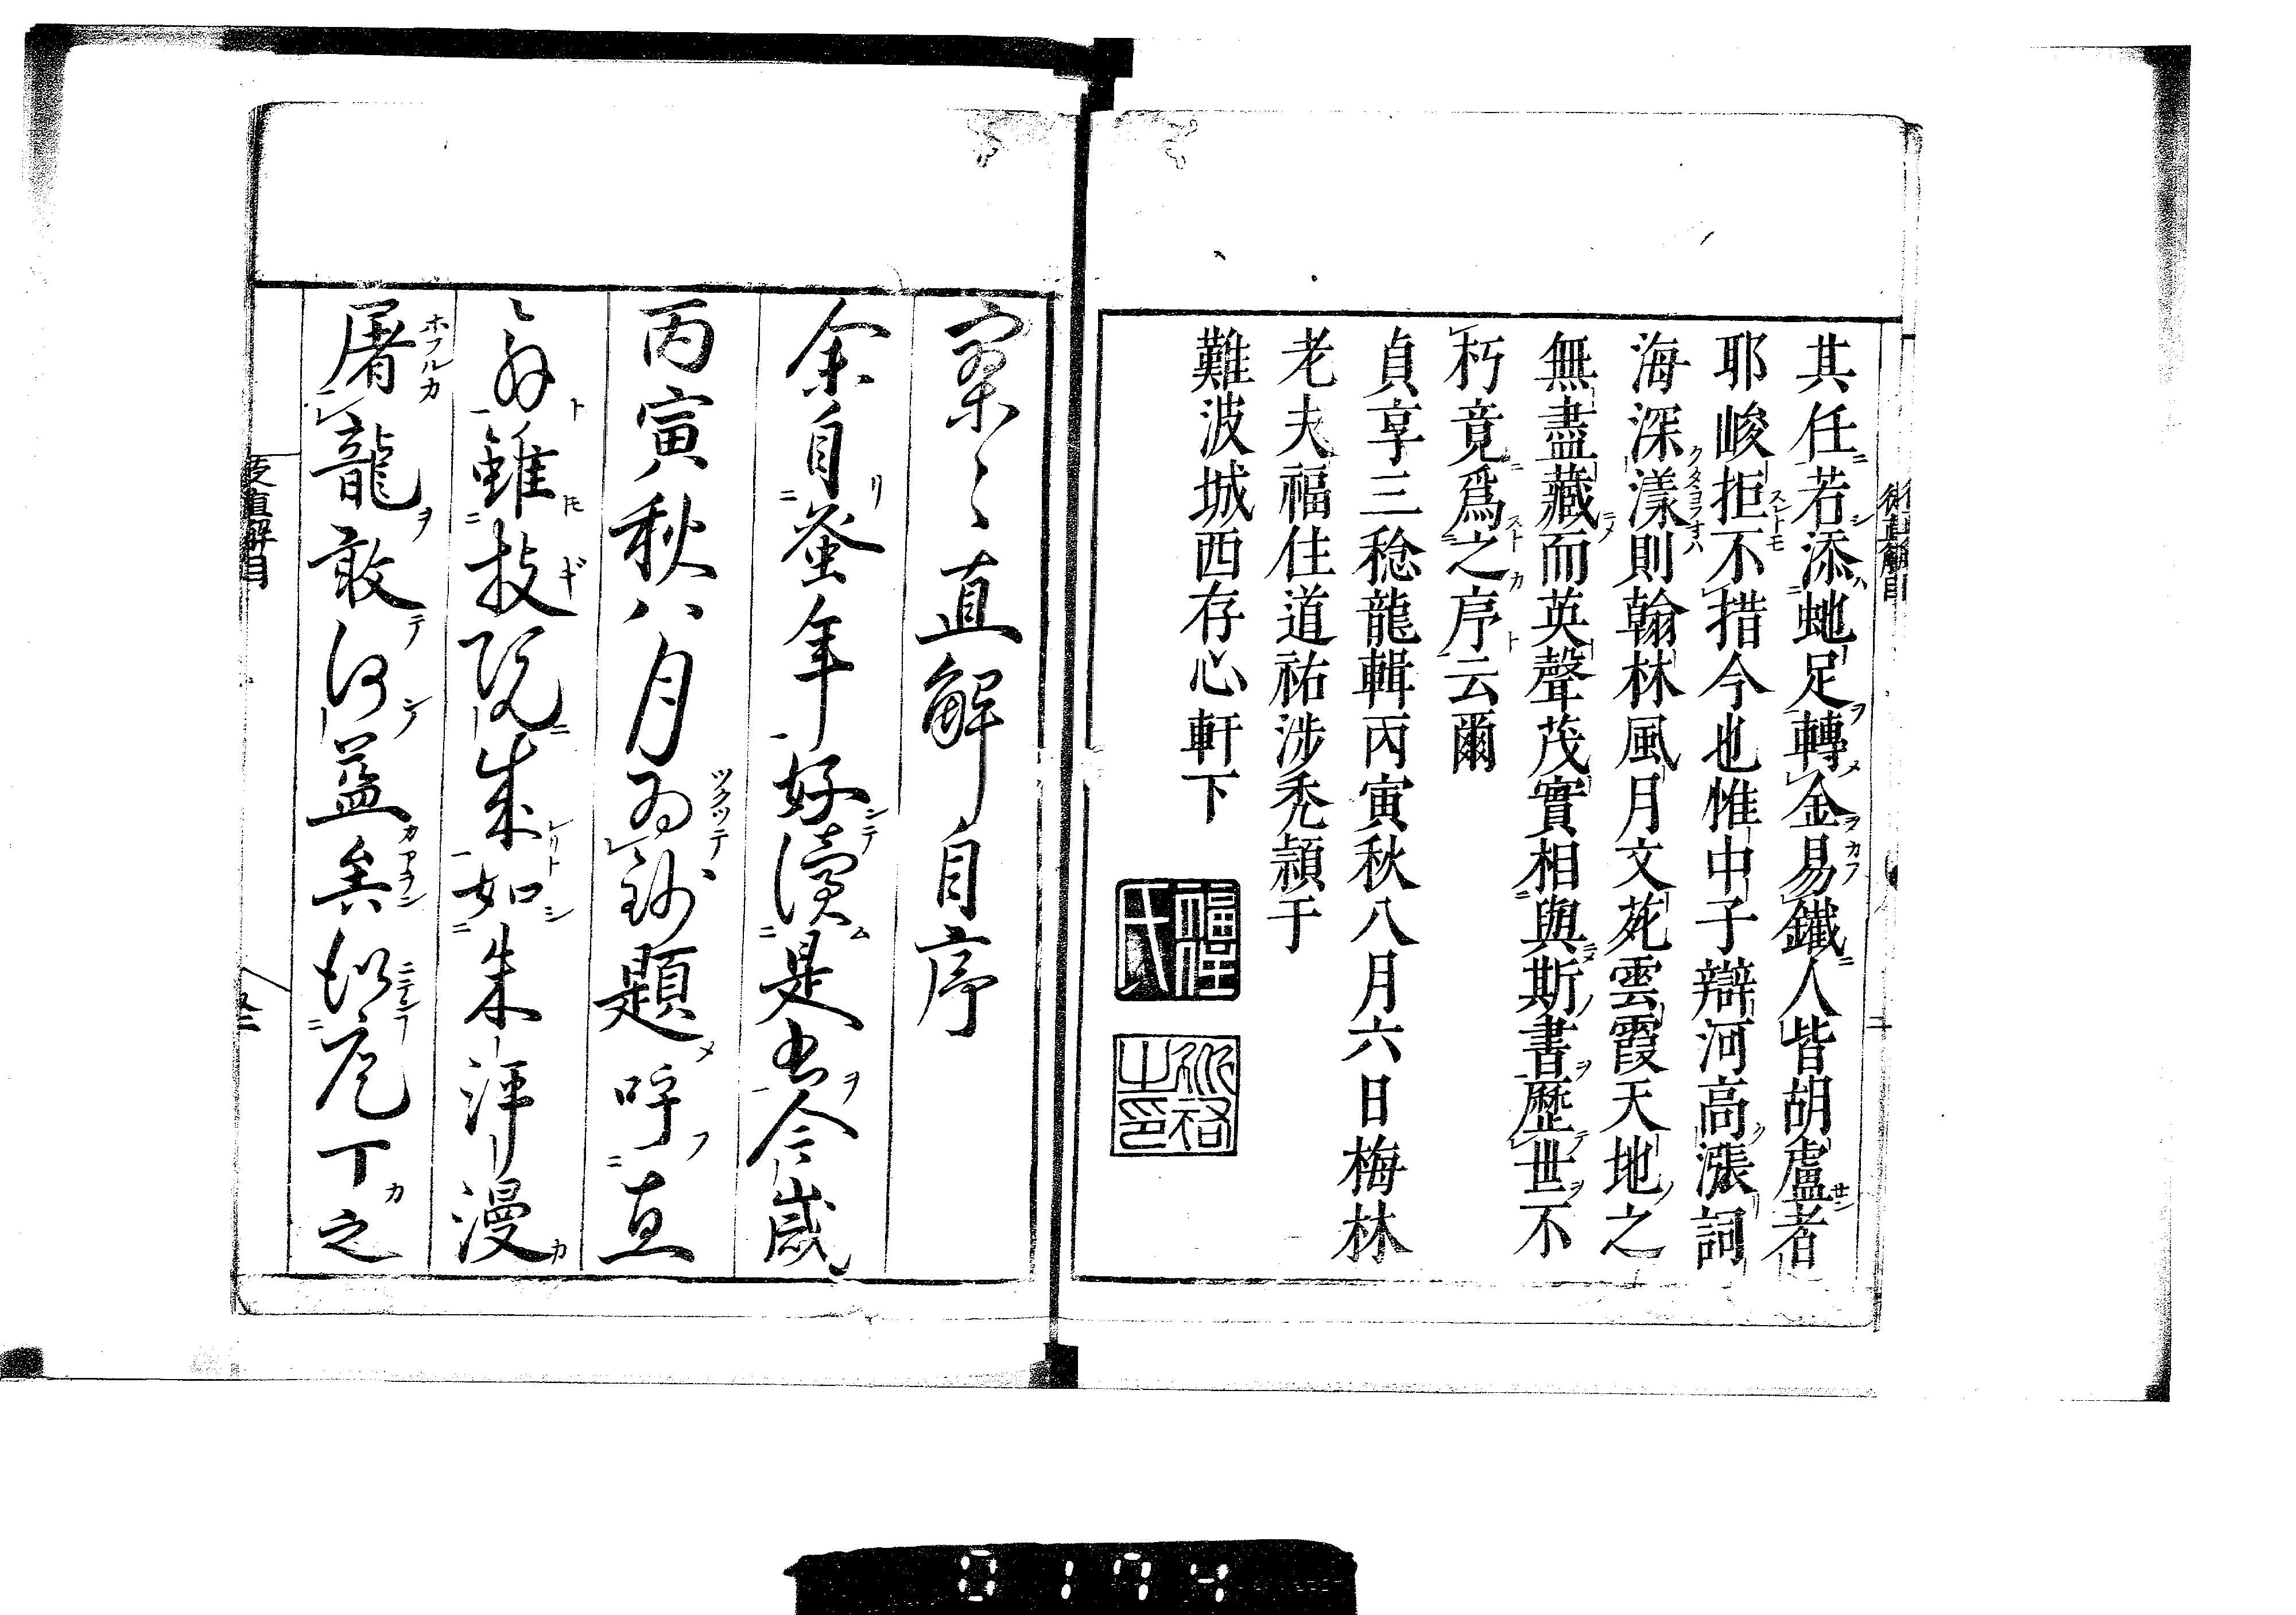 其任若添虵足轉金易鐵人皆胡盧者
耶峻拒不措今也惟中子辯河高漲詞
海深漾則翰林風月文苑雲霞天地之
無盡藏而英聲茂實相與斯書歷世不
朽竟爲之序云爾
貞享三稔龍輯丙寅秋八月六日梅林
老夫福住道祐涉禿穎于
難波城西存心軒下
福住氏
祐之印
直解自序
余自蚤年好讀是書今歲
丙寅秋八月為鈔題呼直
雖技既成如朱泙漫
屠龍敢何益矣似庖丁之
0174